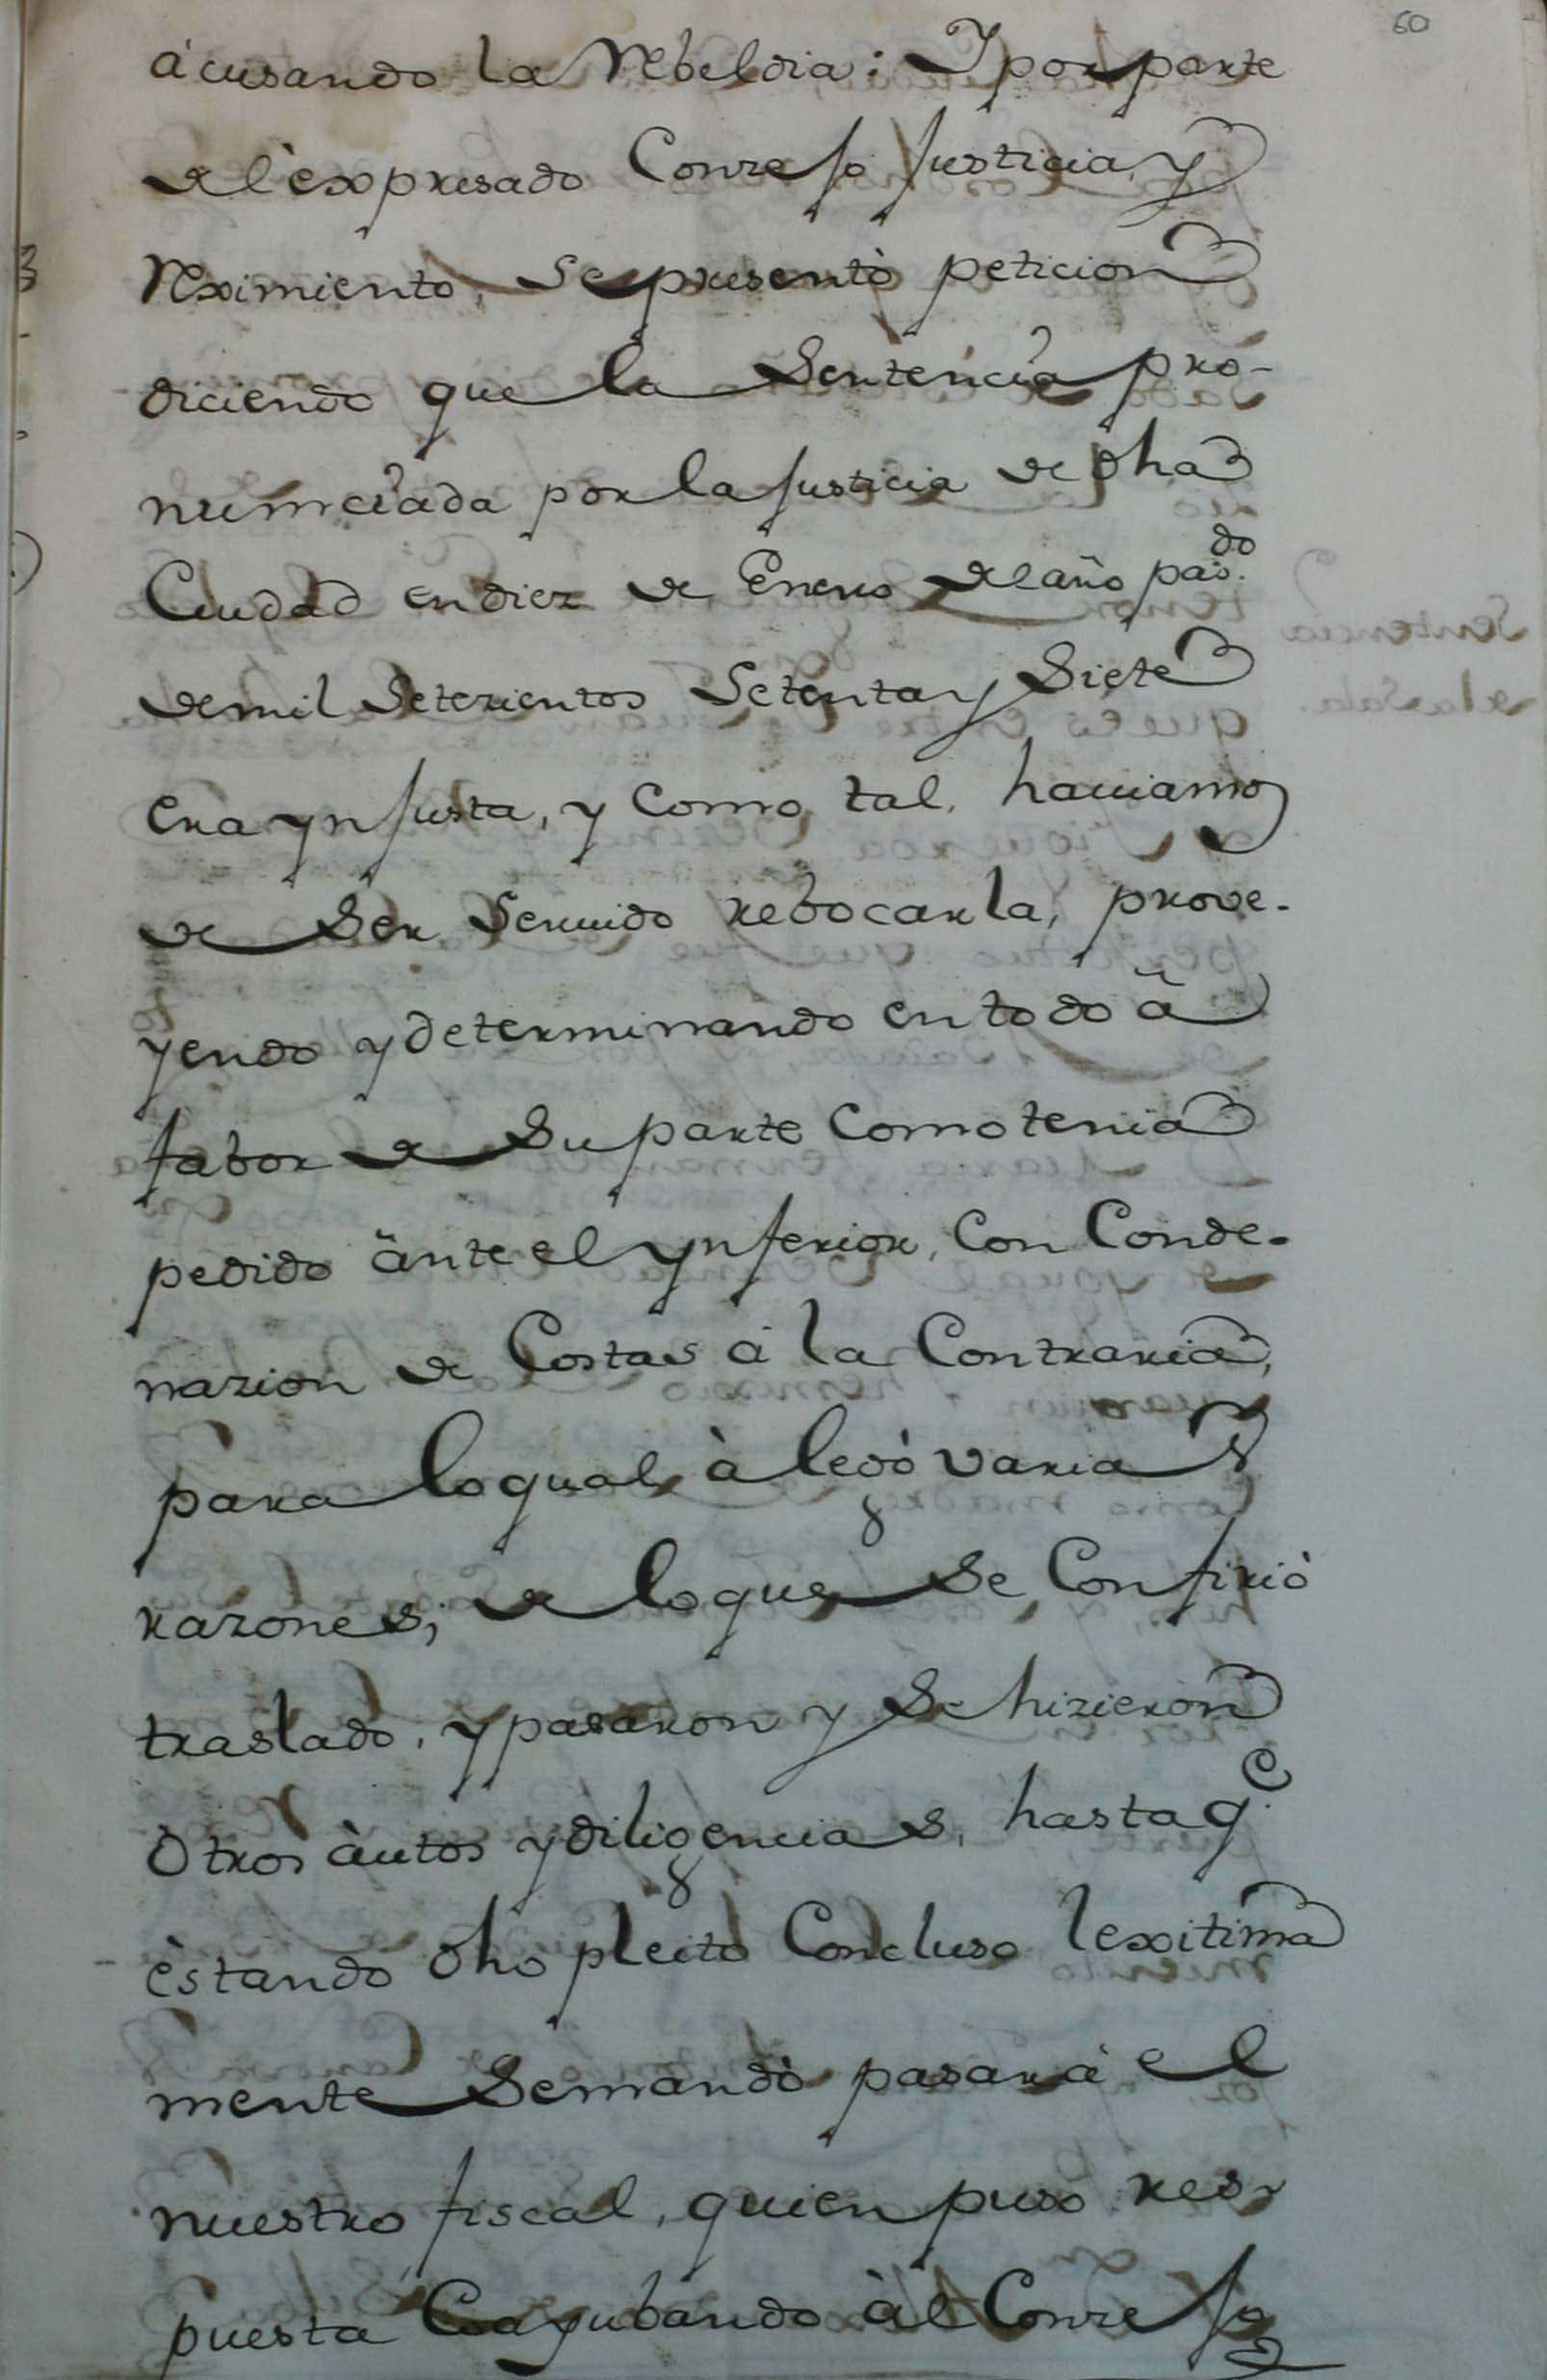 60
ácusando la Rebeldia: Y por parte
del èxpresado Conzejo Justicia, y
Reximiento, se presentò peticion
diciendo que la Sentencia pro-
nunciada por la Justicia de dha
Ciudad en diez de Enero del año pas.do
de mil Setezientos Setenta y Siete
era ynjusta, y Como tal, haviamos
de Ser Servido rebocarla, prove-
yendo y determinando en todo à
fabor de Su parte Como tenia
pedido ante el ynferior, Con Conde-
nazion de Costas à la Contraria,
para lo qual, àlegò varias
razones; de lo que Se Confiriò
traslado, y pasaron y Se hizieron
Otros àutos y diligencias, hasta q.e
èstando dho pleito Concluso lexitima
mente Se mandò pasara èl
nuestro fiscal, quien puso res-
puesta Coayubando àl Conzejo